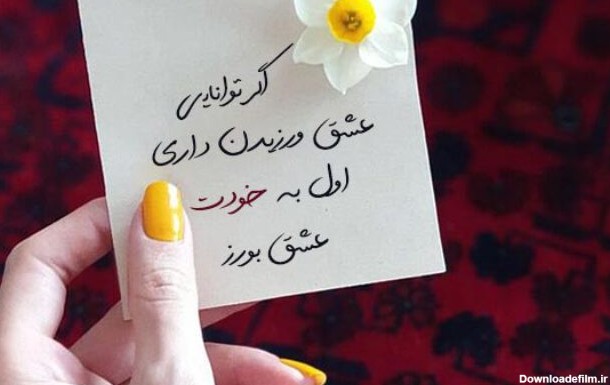 اگر توانایی
عشق ورزیدن داری
اول به خودت
عشق بورز
Downloadefilm.ir